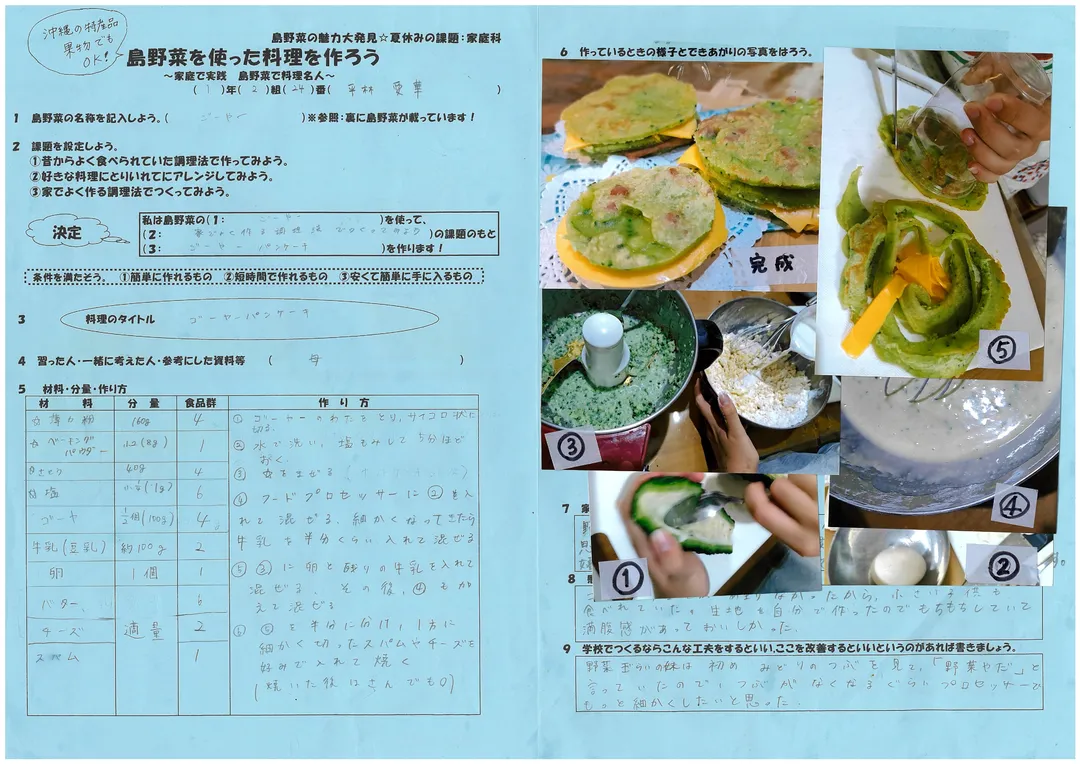 沖縄の特産品
果物でも
OK!
島野菜の魅力大発見☆夏休みの課題:家庭科
島野菜を使った料理を作ろう
~家庭で実践 島野菜で料理名人~
( 1 )年( 2 )組( 24 )番( 平林 愛華 )
1 島野菜の名称を記入しよう。( ゴーヤー )※参照:裏に島野菜が載っています!
2 課題を設定しよう。
①昔からよく食べられていた調理法で作ってみよう。
②好きな料理にとりいれてにアレンジしてみよう。
③家でよく作る調理法でつくってみよう。
決定
私は島野菜の(1: ゴーヤー )を使って、
(2: 家でよく作る調理法でつくってみよう )の課題のもと
(3: ゴーヤーパンケーキ )を作ります!
条件を満たそう。 ①簡単に作れるもの ②短時間で作れるもの ③安くて簡単に手に入るもの
3 料理のタイトル ゴーヤーパンケーキ
4 習った人・一緒に考えた人・参考にした資料等 ( 母 )
5 材料・分量・作り方
材 料 分 量 食品群 作 り 方
薄力粉 160g 4
ベーキングパウダー 小2(8g) 1
さとう 40g 4
塩 (1g) 6
ゴーヤ 1/2個(100g) 4
牛乳(豆乳) 約100g 2
卵 1個 1
バター 6
チーズ 適量 2
スパム 1
① ゴーヤーのわたをとり、サイコロ状に
切る。
② 水で洗い、塩もみして5分ほど
おく。
③ をまぜる
④ フードプロセッサーに②を入
れて混ぜる。細かくなってきたら
牛乳を半分くらい入れて混ぜる
⑤ ③に卵と残りの牛乳を入れて
混ぜる。その後、④もか
えて混ぜる
⑥ ⑤を半分に分け、1方に
細かく切ったスパムやチーズを
好みで入れて焼く
(焼いた後はさんでもO)
6 作っているときの様子とできあがりの写真をはろう。
完成
⑤
③
④
①
②
7
8
なかったから、小さい子供も
食べれていた。生地を自分で作ったのでもちもちしていて
満腹感があっておいしかった。
9 学校でつくるならこんな工夫をするといい、ここを改善するといいというのがあれば書きましょう。
野菜ぎらいの妹は初め みどりのつぶを見て、「野菜やだ」と
言っていたので、つぶがなくなるぐらいプロセッサーで
もっと細かくしたいと思った。